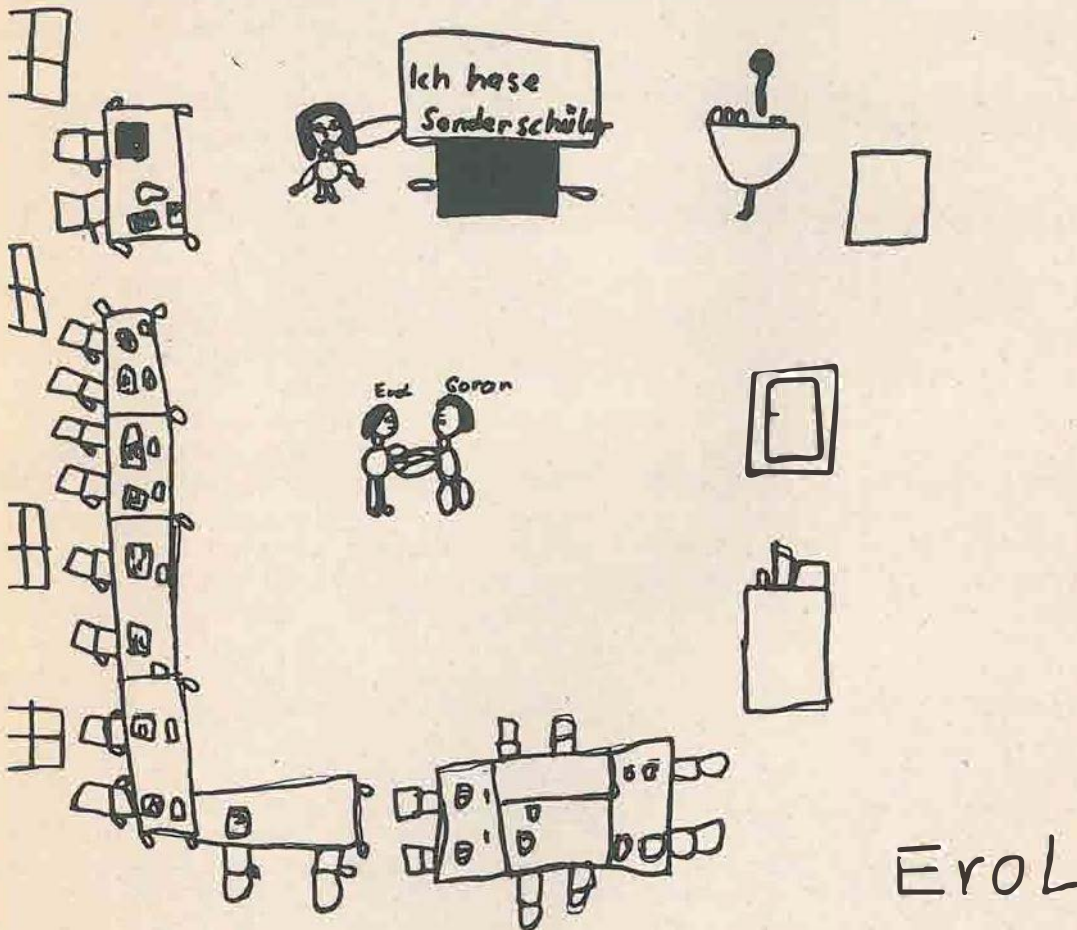 Ich hase
Sonderschüler
Erol Goran
EroL